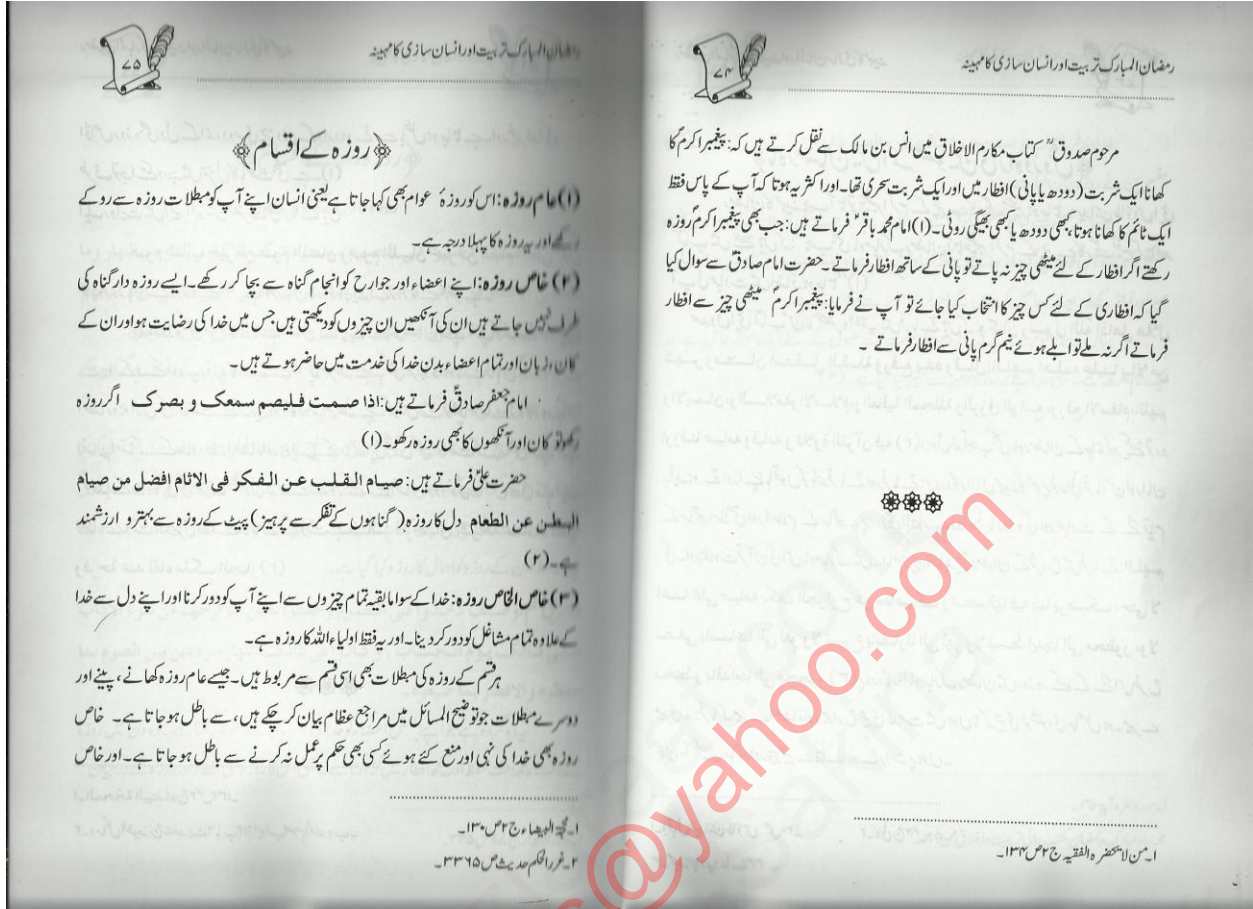 رمضان المبارک تربیت اور انسان سازی کا مہینہ
۷۴
مرحوم صدوقؒ کتاب مکارم الاخلاق میں انس بن مالک سے نقل کرتے ہیں کہ: پیغمبر اکرمؐ کا
کھانا ایک شربت (دودھ یا پانی) افطار میں اور ایک شربت سحری تھا۔ اور اکثر یہ ہوتا کہ آپ کے پاس فقط
ایک ٹائم کا کھانا ہوتا، کبھی دودھ یا کبھی بھیگی روٹی۔(۱) امام محمد باقرؑ فرماتے ہیں: جب بھی پیغمبر اکرمؐ روزہ
رکھتے اگر افطار کے لئے میٹھی چیز نہ پاتے تو پانی کے ساتھ افطار فرماتے۔ حضرت امام صادقؑ سے سوال کیا
گیا کہ افطاری کے لئے کس چیز کا انتخاب کیا جائے تو آپ نے فرمایا: پیغمبر اکرمؐ میٹھی چیز سے افطار
فرماتے اگر نہ ملے تو ابلے ہوئے نیم گرم پانی سے افطار فرماتے ۔
۱۔ من لا یحضرہ الفقیہ ج ۲ ص ۱۳۴۔
رمضان المبارک تربیت اور انسان سازی کا مہینہ
۷۵
روزہ کے اقسام
(۱) عام روزہ: اس کو روزۂ عوام بھی کہا جاتا ہے یعنی انسان اپنے آپ کو مبطلات روزہ سے روکے
رکھے اور یہ روزہ کا پہلا درجہ ہے۔
(۲) خاص روزہ: اپنے اعضاء اور جوارح کو انجام گناہ سے بچا کر رکھے۔ ایسے روزہ دار گناہ کی
طرف نہیں جاتے ہیں ان کی آنکھیں ان چیزوں کو دیکھتی ہیں جس میں خدا کی رضایت ہو اور ان کے
کان، زبان اور تمام اعضاء بدن خدا کی خدمت میں حاضر ہوتے ہیں۔
امام جعفر صادقؑ فرماتے ہیں: اذا صمت فلیصم سمعک و بصرک اگر روزہ
رکھو تو کان اور آنکھوں کا بھی روزہ رکھو۔(۱)
حضرت علیؑ فرماتے ہیں: صیام القلب عن الفکر فی الاثام افضل من صیام
البطن عن الطعام دل کا روزہ (گناہوں کے تفکر سے پرہیز) پیٹ کے روزہ سے بہتر و ارزشمند
ہے۔(۲)
(۳) خاص الخاص روزہ: خدا کے سوا مابقیہ تمام چیزوں سے اپنے آپ کو دور کرنا اور اپنے دل سے خدا
کے علاوہ تمام مشاغل کو دور کر دینا۔ اور یہ فقط اولیاء اللہ کا روزہ ہے۔
ہر قسم کے روزہ کی مبطلات بھی اسی قسم سے مربوط ہیں۔ جیسے عام روزہ کھانے، پینے اور
دوسرے مبطلات جو توضیح المسائل میں مراجع عظام بیان کر چکے ہیں، سے باطل ہو جاتا ہے۔ خاص
روزہ بھی خدا کی نہی اور منع کئے ہوئے کسی بھی حکم پر عمل نہ کرنے سے باطل ہو جاتا ہے۔ اور خاص
۱۔ محجۃ البیضاء ج ۲ ص ۱۳۰۔
۲۔ غرر الحکم حدیث ص ۳۳۶۵۔
s@yahoo.com